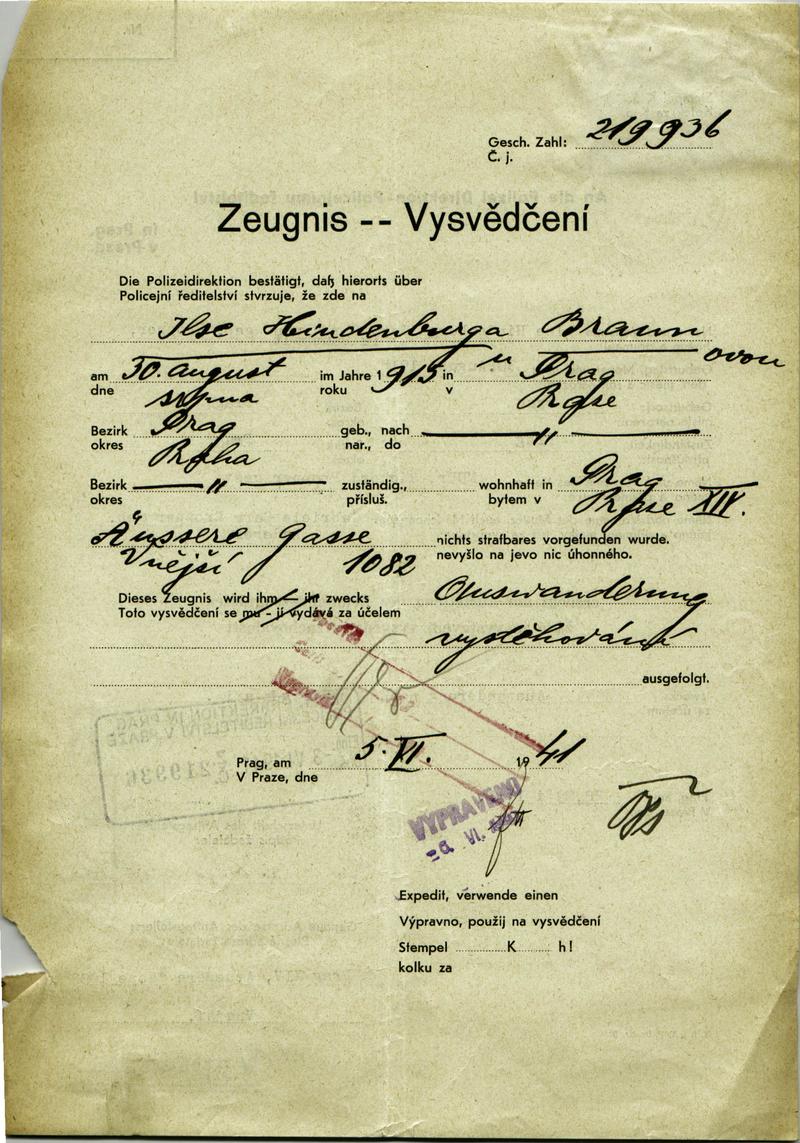 Gesch. Zahl: 219936
Č. j.
Zeugnis -- Vysvědčení
Die Polizeidirektion bestätigt, daß hierorts über
Policejní ředitelství stvrzuje, že zde na
Ilse Hindenburga Braun
ovou
am 30. august im Jahre 1915 in Prag
dne srpna roku v Praze
Bezirk Prag geb., nach — " —
okres Praha nar., do
Bezirk — " — zuständig., wohnhaft in Prag
okres přísluš. bytem v Praze XIV.
Äussere Gasse nichts strafbares vorgefunden wurde.
Vnější 1082 nevyšlo na jevo nic úhonného.
Dieses Zeugnis wird ihm — ihr zwecks Auswanderung
Toto vysvědčení se mu - jí vydává za účelem
vystěhování
ausgefolgt.
Prag, am 5. VI. 1941
V Praze, dne
VYPRAVENO
-6. VI.
Expedit, verwende einen
Výpravno, použij na vysvědčení
Stempel K h!
kolku za